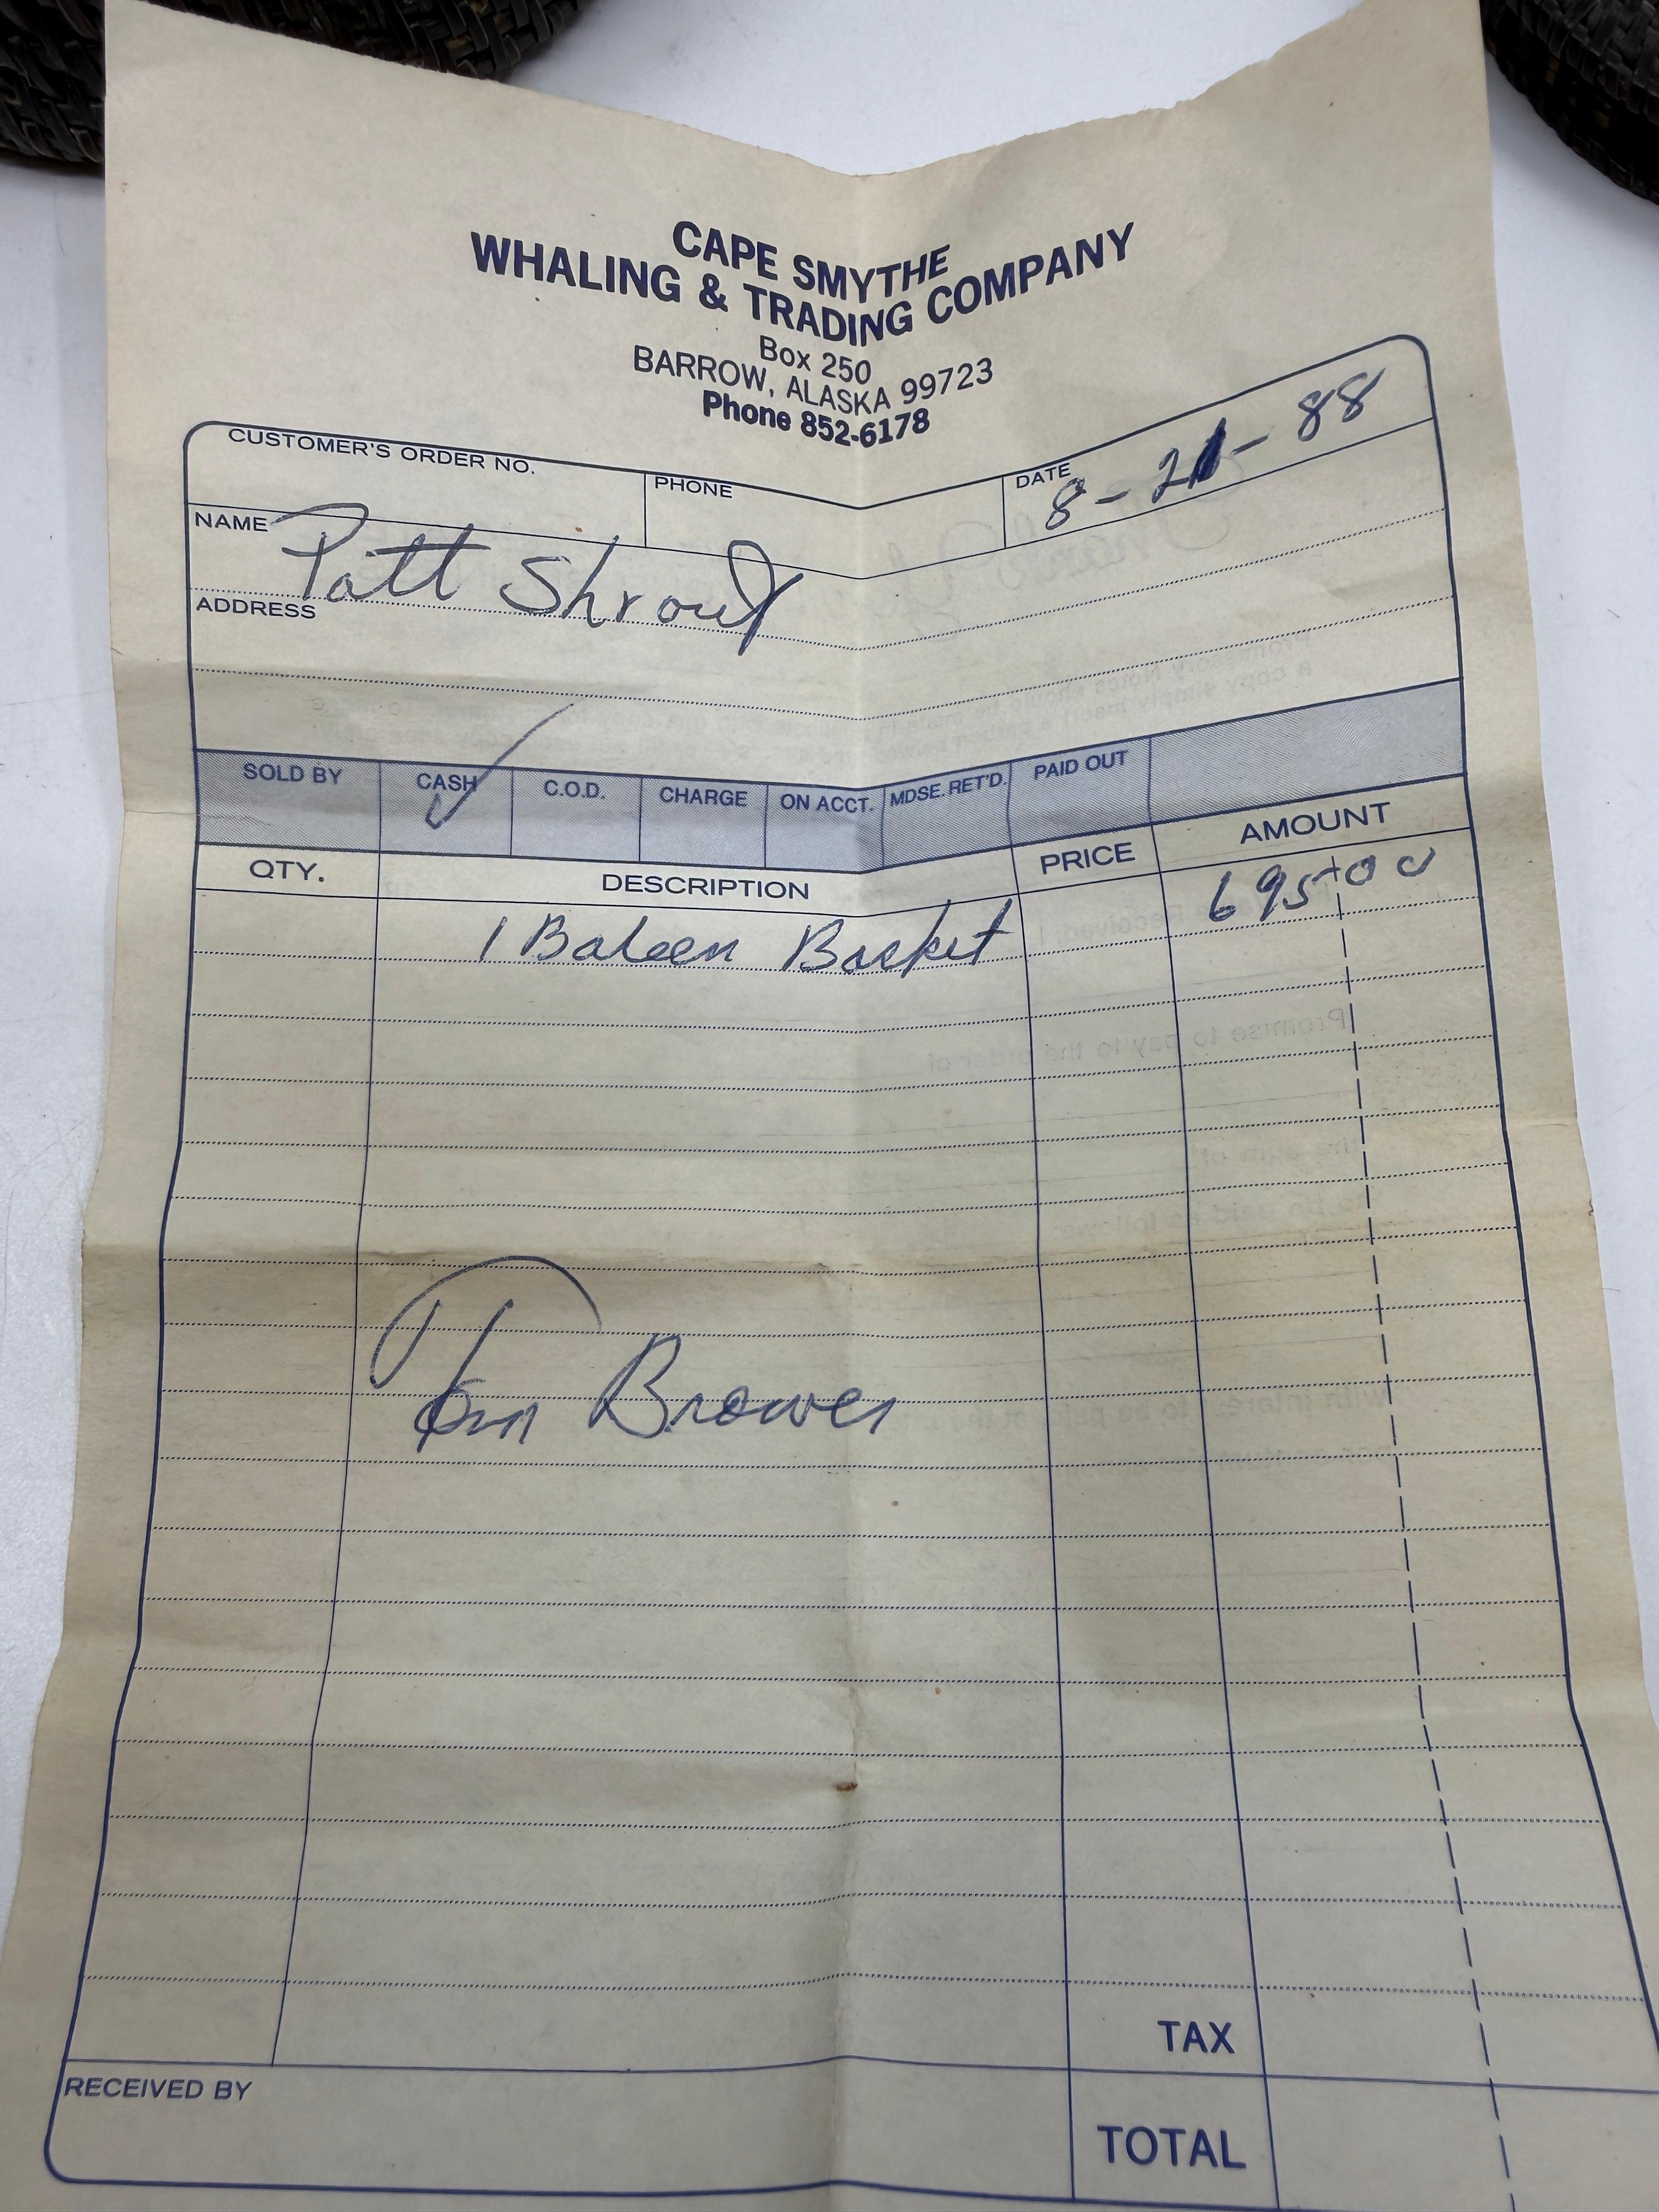 CAPE SMYTHE
WHALING & TRADING COMPANY
Box 250
BARROW, ALASKA 99723
Phone 852-6178
CUSTOMER'S ORDER NO.
PHONE
DATE
8-21-88
NAME
Patt Shrout
ADDRESS
SOLD BY
CASH
C.O.D.
CHARGE
ON ACCT.
MDSE. RET'D.
PAID OUT
QTY.
DESCRIPTION
PRICE
AMOUNT
1 Baleen Basket
695 00
Tom Brower
TAX
RECEIVED BY
TOTAL